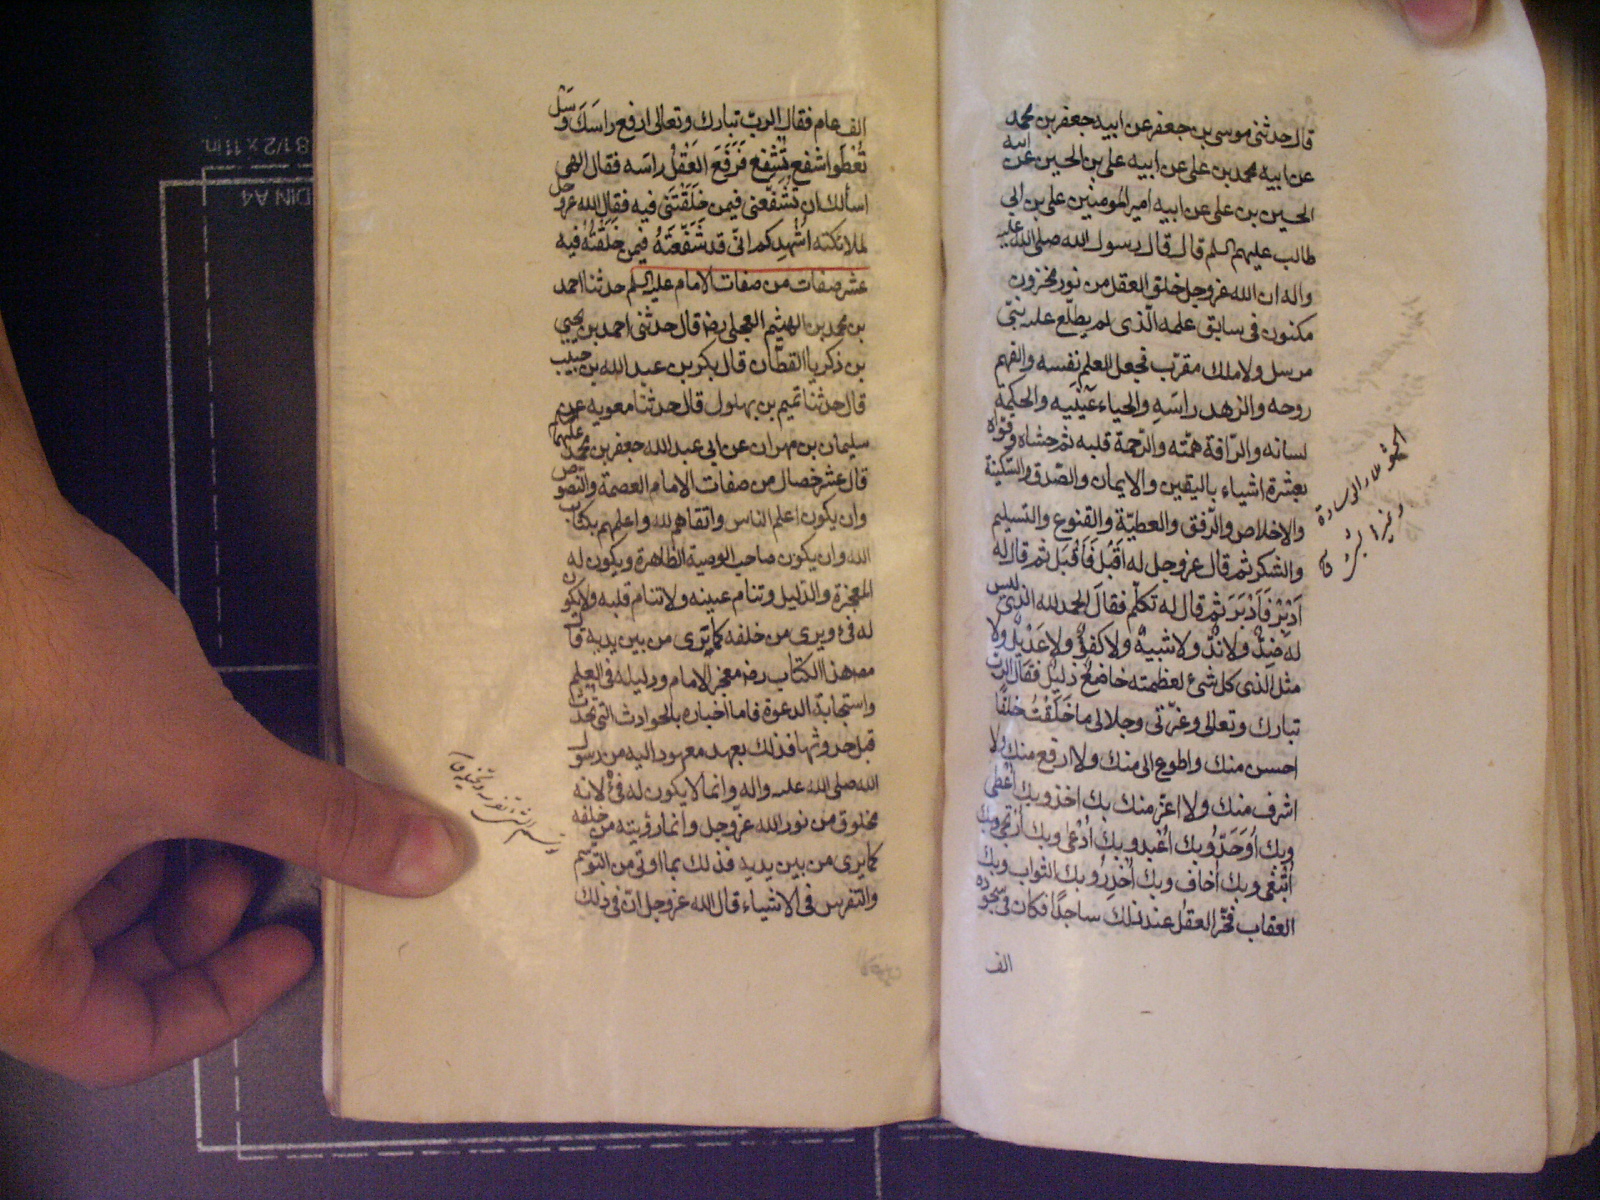 قال حدثنى موسى بن جعفر عن ابيه جعفر بن محمد
عن ابيه محمد بن على عن ابيه على بن الحسين عن ابيه
الحسين بن على عن ابيه امير المومنين على بن ابى
طالب عليهم السلم قال قال رسول الله صلى الله عليه
واله ان الله عز وجل خلق العقل من نور مخزون
مكنون فى سابق علمه الّذى لم يطلع عليه نبىّ
مرسل ولا ملك مقرّب فجعل العلم نفسه والفهم
روحه والزهد راسَهِ والحياء عَيْنَيه والحكمة
لسانه والرّافة همّته والرّحمة قلبه ثم حشاه وقوّاه
بعشرة اشياء باليقين والايمان والصّدق والسّكينة
والاخلاص والرّفق والعطيّة والقنوع والتسليم
والشكر ثم قال عز وجل له اَقْبَل فَاَقْبَلَ ثم قال له
اَدْبِرْ فَاَدْبَرَ ثم قال له تَكَلّم فقالَ الحمد لله الذى ليس
له ضِدٌّ ولا نِدٌّ ولا شبيهٌ ولا كفوٌ ولا عَدْيلٌ ولا
مثل الّذى كل شىء لعظمته خاضعٌ ذليلٌ فقال الربّ
تبارك وتعالى وعزّتى وجلالى ما خَلَقْتُ خلقًا
احسن منك ولا اطوع لى منك ولا ارفع منك ولا
اشرف منك ولا اعزّ منك بك اخذ وبك اُعْطى
وبك اُوَحَدُ وبك اُعْبَد وبك اُدْعى وبك اُرْتجى وبك
اُبْتَغى وبك اُخاف وبك اُحْذرُ وبك الثواب وبك
العقاب فخّر العقل عند ذلك ساجدًا فكان فى سجوده
الف
الف عام فقال الربّ تبارك وتعالى ارفع راسَكَ وسَل
تُعْطَ واشفع تُشَفع فَرَفَعَ العَقْلُ راسَه فقال الهى
اسألك ان تُشَفّعَنى فيمن خَلَقْتَنى فيه فقال الله عزّ وجل
لملائكته اُشْهِدكم انّى قد شَفَّعتَهُ فيمن خَلَقْتُهُ فيه
عشر صفات من صفات الامام عليه السلم حدثنا احمد
بن محمد بن الهيثم العجلى رض قال حدثنى احمد بن يحيى
بن ذكريا القطّان قال بكر بن عبد الله بن حبيب
قال حدثنا تميم بن بهلول قال حدثنا معويه عن
سليمان بن مهران عن ابى عبد الله جعفر بن محمد عليهم
قال عشر خصال من صفات الامام العصمة والنصوص
وان يكون اعلم الناس واتقاهم لله واعلمهم بكتاب
الله وان يكون صاحب الوصية الظاهرة ويكون له
المعجزة والدّليل وتنام عينه ولا تنام قلبه ولا يكون
له فىء ويرى من خلفه كما يرى من بين يديه قال
مصـ هذا الكتاب رض معجز الامام ودليله فى العلم
واستجابة الدعوة فاما اخباره بالحوادث التى تحدث
قبل حدوثها فذلك بعهد معهود اليه من رسول
الله صلى الله عليه واله وانما لا يكون له فىء لانه
مخلوق من نور الله عزّ وجل وانما رؤيته من خلفه
كما يرى من بين يديه فذلك بما اوتى من التوسّم
والتفرس فى الاشياء قال الله عز وجل انّ فى ذلك